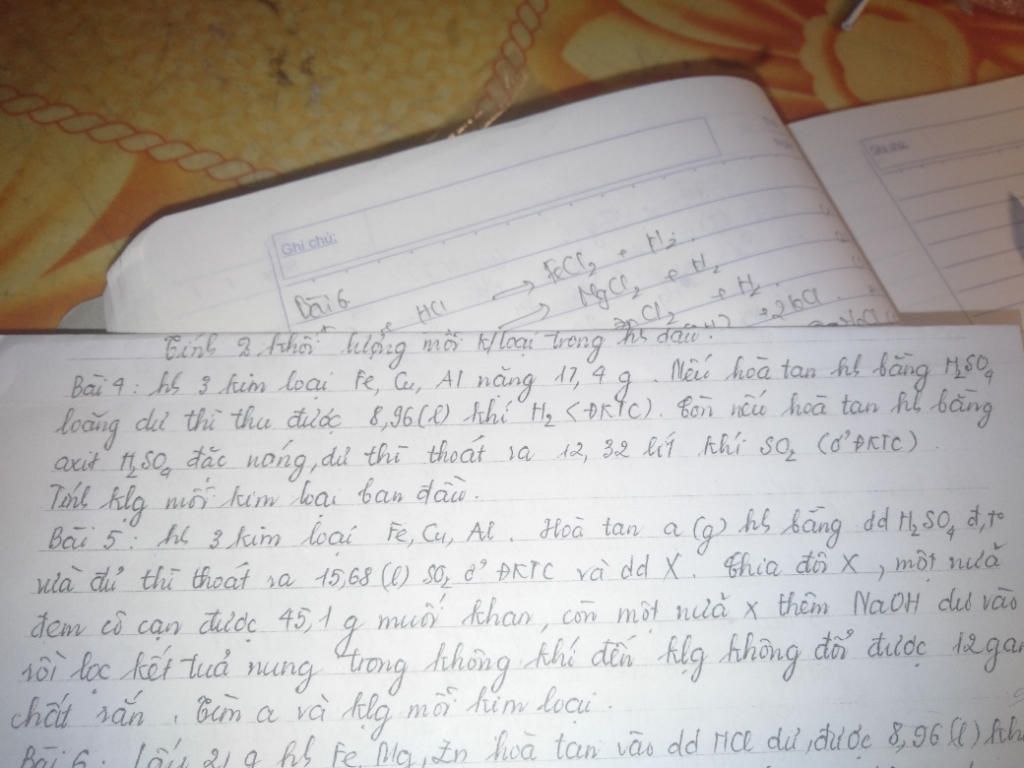 Ghi chú:
Ghi chú:
Bài 6
HCl → FeCl2 + H2
→ MgCl2 + H2
Cl2 + H2
Tính % khối lượng mỗi k/loại trong hh đầu.
Bài 4: hh 3 kim loại Fe, Cu, Al nặng 17,4 g. Nếu hoà tan hh bằng H2SO4
loãng dư thì thu được 8,96(l) khí H2 <ĐKTC). Còn nếu hoà tan hh bằng
axit H2SO4 đặc nóng, dư thì thoát ra 12,32 lít khí SO2 (ở ĐKTC)
Tính klg mỗi kim loại ban đầu.
Bài 5: hh 3 kim loại Fe, Cu, Al. Hoà tan a (g) hh bằng dd H2SO4 đ,to
vừa đủ thì thoát ra 15,68 (l) SO2 ở ĐKTC và dd X. Chia đôi X, một nửa
đem cô cạn được 45,1 g muối khan, còn một nửa X thêm NaOH dư vào
rồi lọc kết tuả nung trong không khí đến klg không đổi được 12 gam
chất rắn. Tìm a và klg mỗi kim loại.
Bài 6: Lấy 21 g hh Fe, Mg, Zn hoà tan vào dd HCl dư, được 8,96 (l) khí